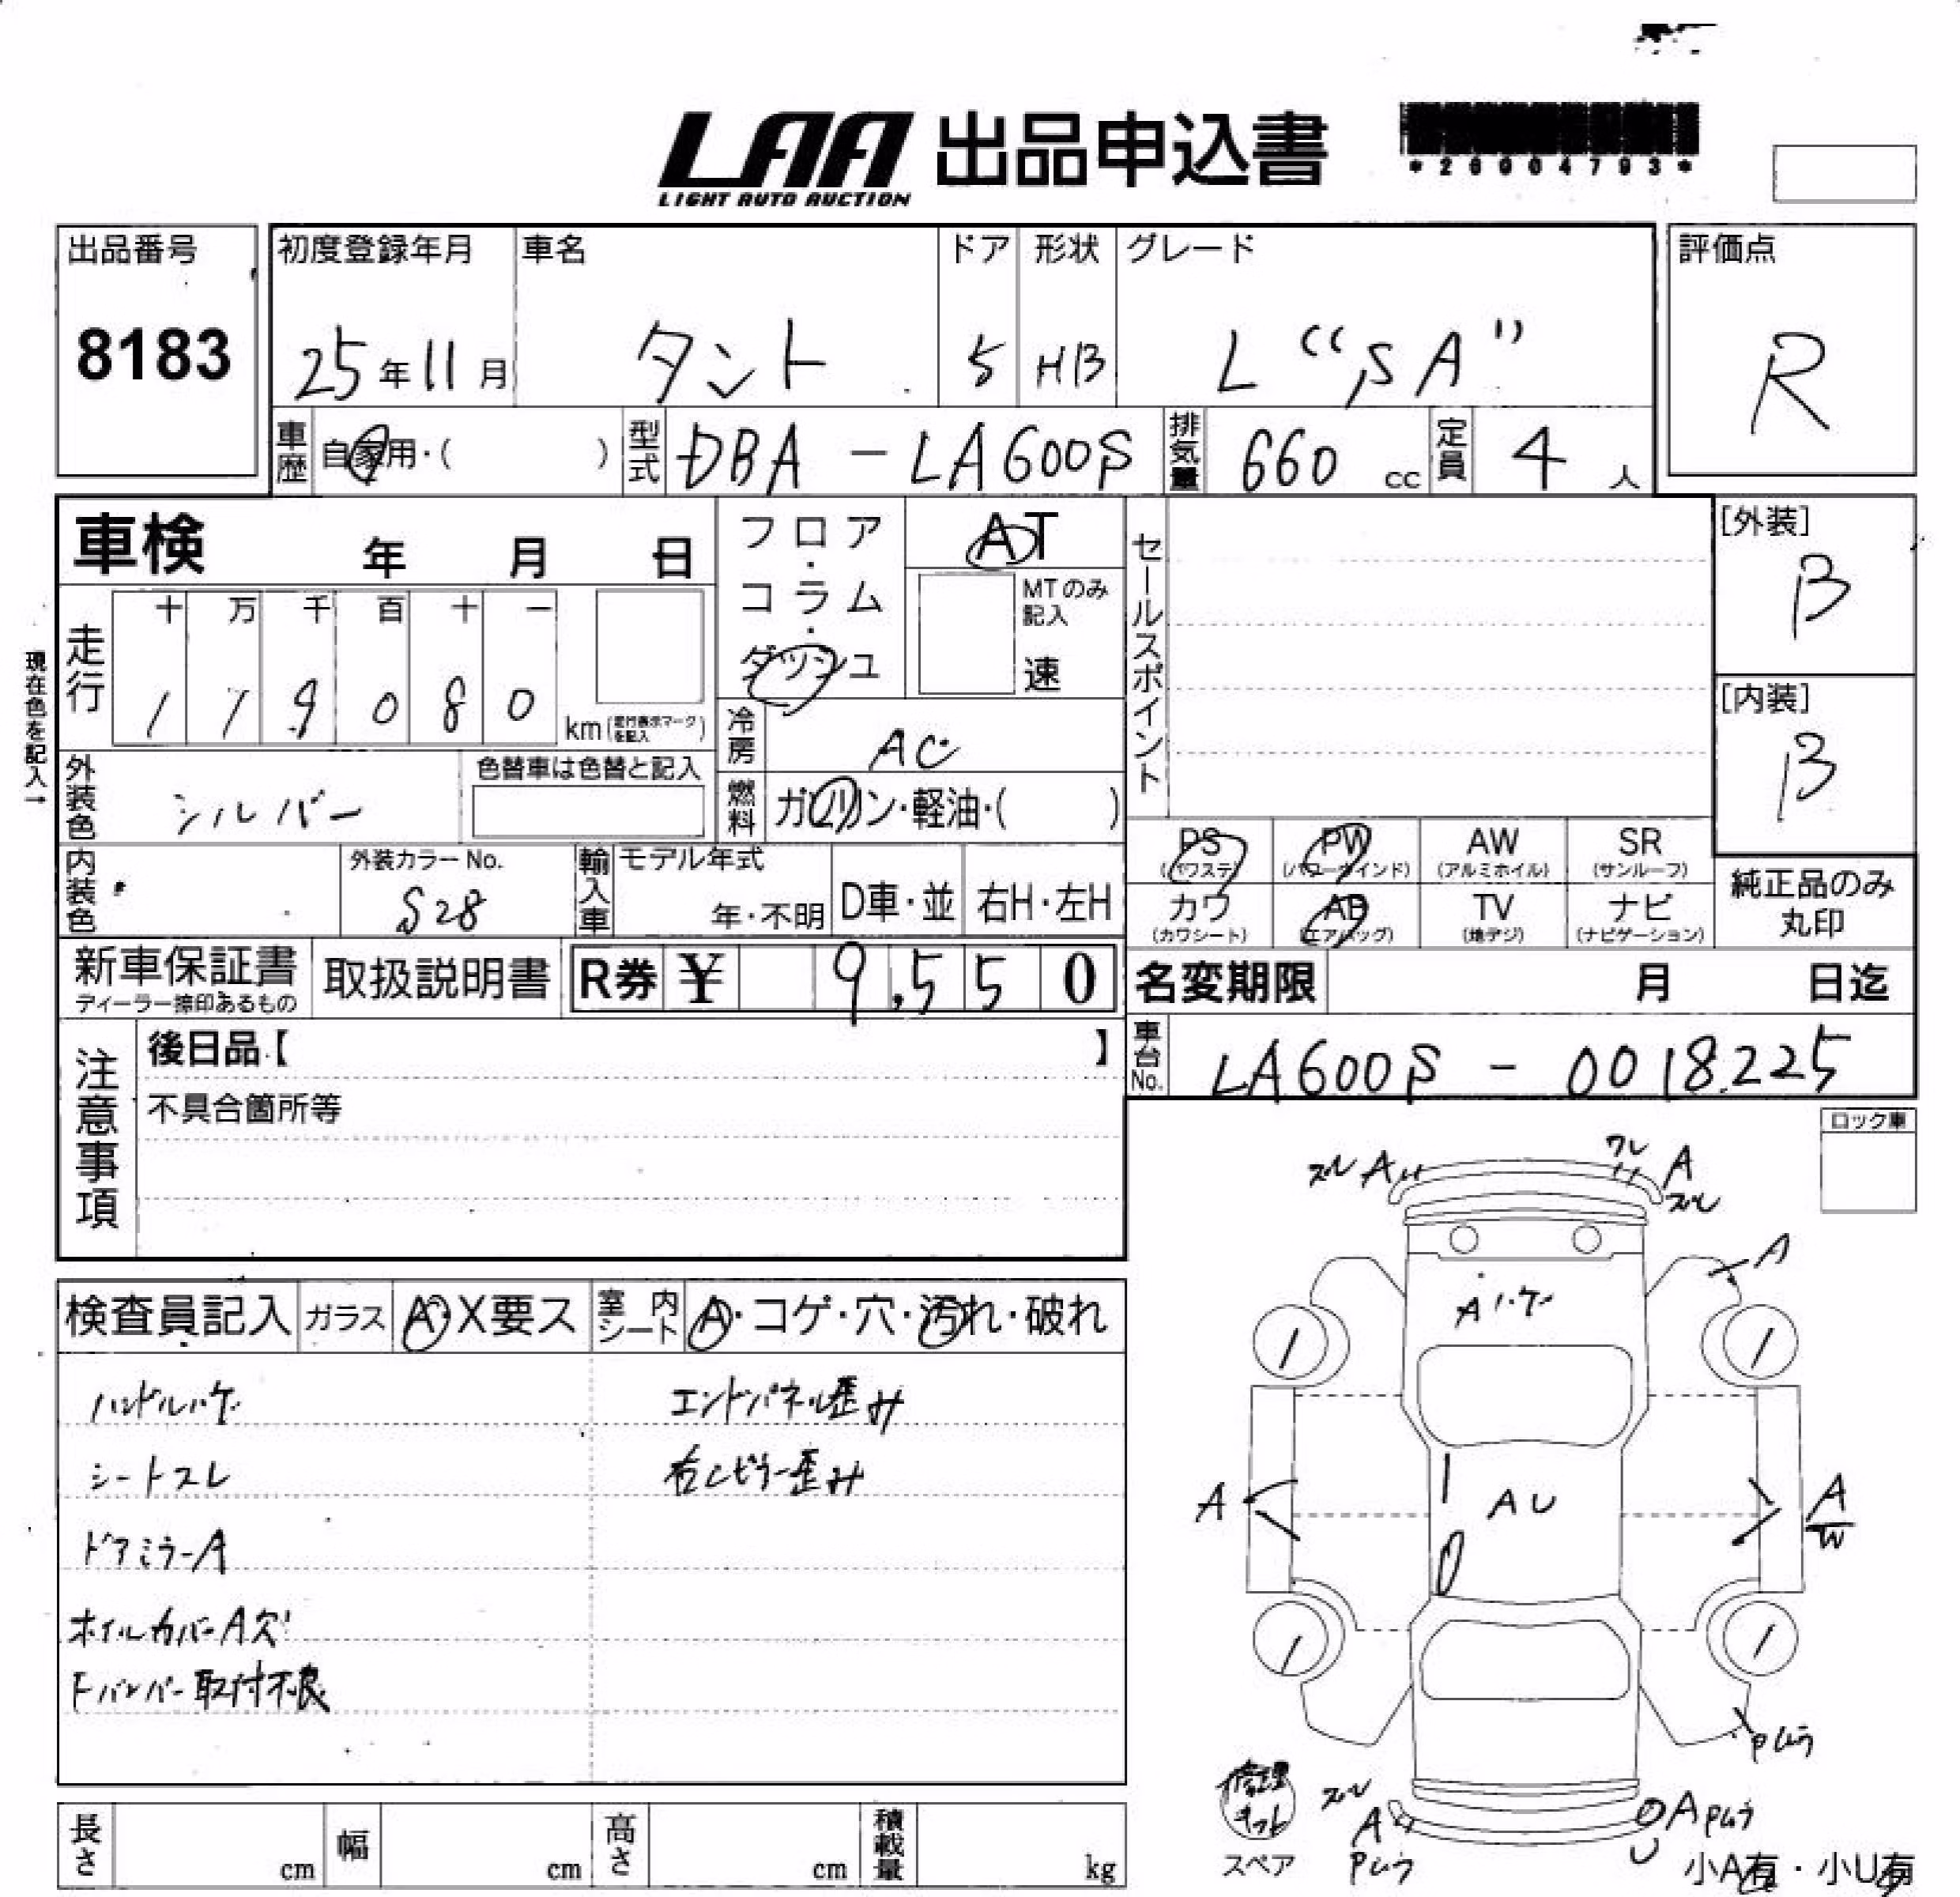 LAA 出品申込書
LIGHT AUTO AUCTION
*26004793*
出品番号
8183
初度登録年月
25年11月
車名
タント
ドア
5
形状
HB
グレード
L "SA"
評価点
R
車歴
自家用・( )
型式
DBA-LA600S
排気量
660 cc
定員
4 人
車検 年 月 日
フロア・コラム・ダッシュ
AT
MTのみ記入
速
セールスポイント
[外装]
B
[内装]
B
現在色を記入→
走行
十 万 千 百 十 一
1 1 9 0 8 0 km
冷房
AC
外装色
シルバー
色替車は色替と記入
燃料
ガソリン・軽油・( )
内装色
外装カラーNo.
S28
輸入車
モデル年式
年・不明
D車・並
右H・左H
PS
(パワステ)
PW
(パワーウインド)
AW
(アルミホイル)
SR
(サンルーフ)
カワ
(カワシート)
AB
(エアバッグ)
TV
(地デジ)
ナビ
(ナビゲーション)
純正品のみ
丸印
新車保証書
ディーラー捺印あるもの
取扱説明書
R券 ¥ 9,550
名変期限 月 日迄
車台No.
LA600S-0018225
注意事項
後日品【 】
不具合箇所等
ロック車
検査員記入
ガラス
A・X要ス
室内シート
A・コゲ・穴・汚れ・破れ
ハンドルハゲ
シートスレ
ドアミラーA
ホイルカバーA欠
Fバンパー取付不良
エンドパネル歪み
右Cピラー歪み
スレ A
ワレ
A
スレ
A
Aハゲ
A
AU
A
W
Pムラ
修理キット
スペア
スレ
A
Pムラ
A Pムラ
U
小A有・小U有
長さ cm
幅 cm
高さ cm
積載量 kg